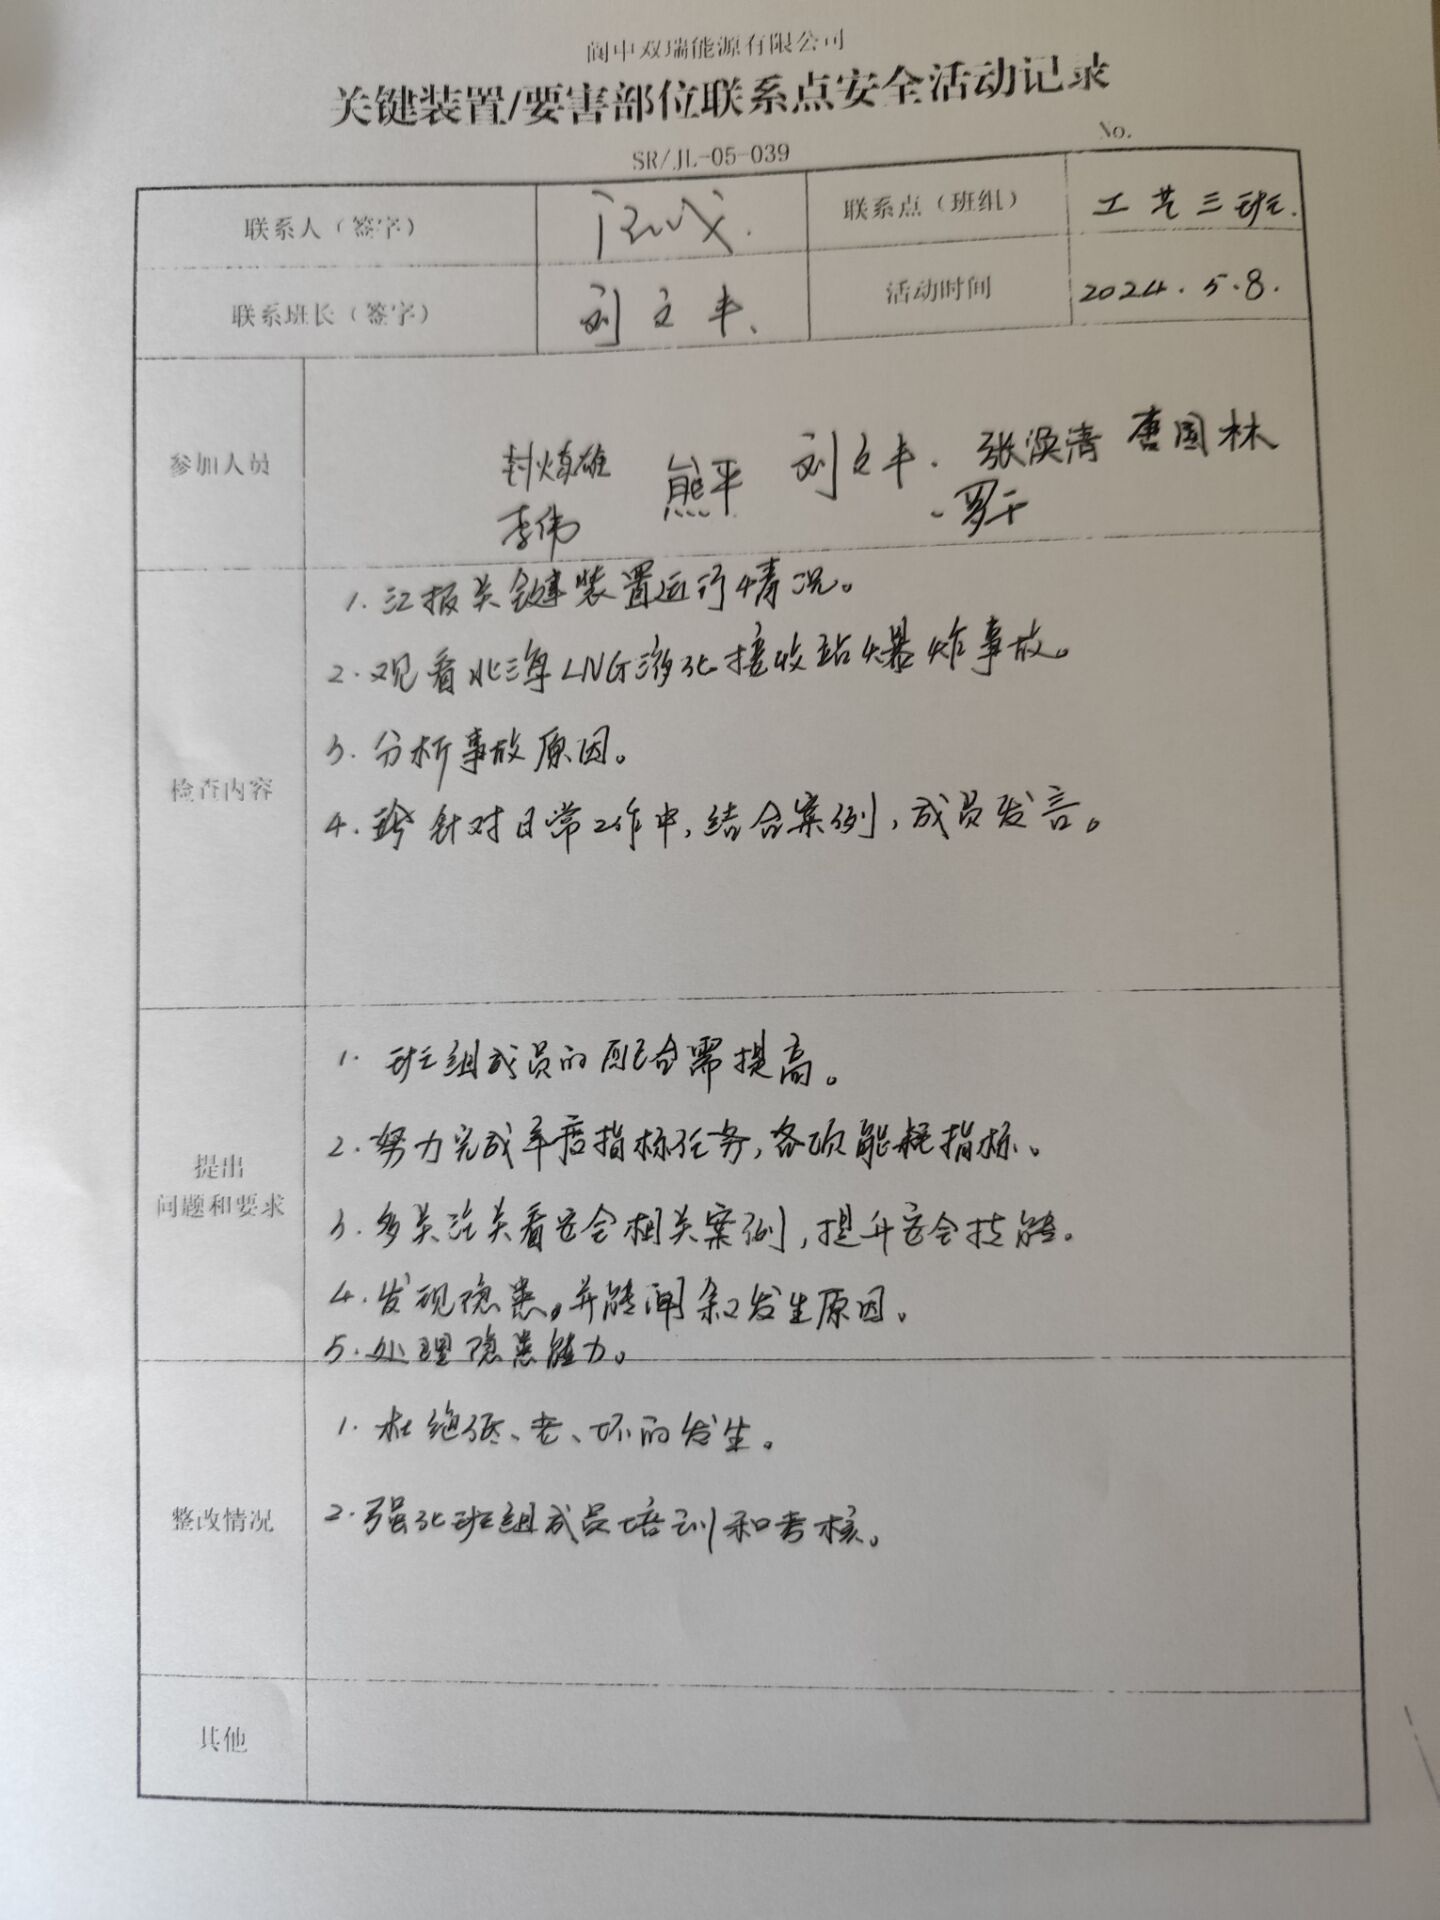 阆中双瑞能源有限公司
关键装置/要害部位联系点安全活动记录
No.
SR/JL-05-039
联系人（签字） 联系点（班组） 工艺三班.
联系班长（签字） 刘文丰、 活动时间 2024.5.8.
参加人员
熊平 刘文丰. 张涣清 唐国林
李伟 罗千
检查内容
1. 汇报关键装置运行情况。
2. 观看北海LNG液化接收站爆炸事故。
3. 分析事故原因。
4. 针对日常工作中, 结合案例, 成员发言。
提出
问题和要求
1. 班组成员的配合需提高。
2. 努力完成年度指标任务, 各项能耗指标、
3. 多关注关看安全相关案例, 提升安全技能。
4. 发现隐患。并能阐叙发生原因。
5. 处理隐患能力。
整改情况
1. 杜绝低、老、坏的发生。
2. 强化班组成员培训和考核。
其他